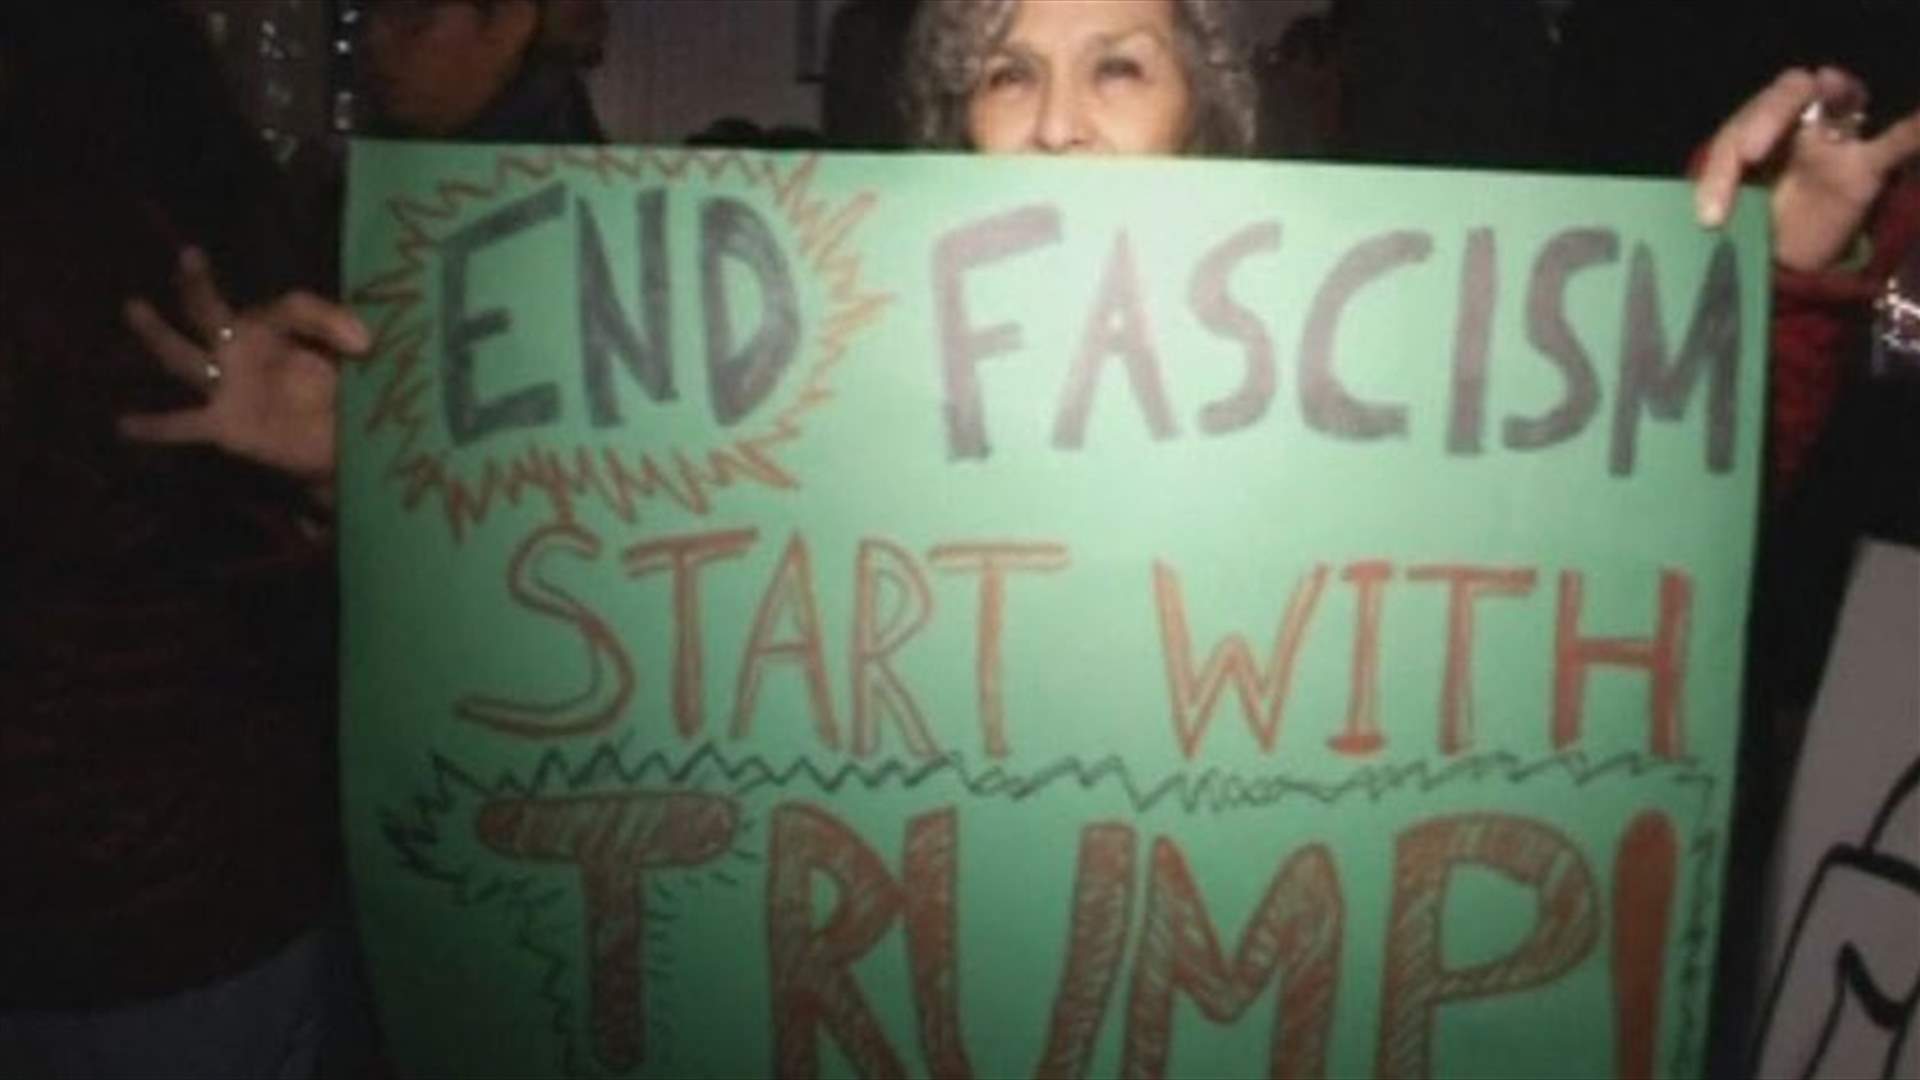 END FASCISM
START WITH
TRUMP!